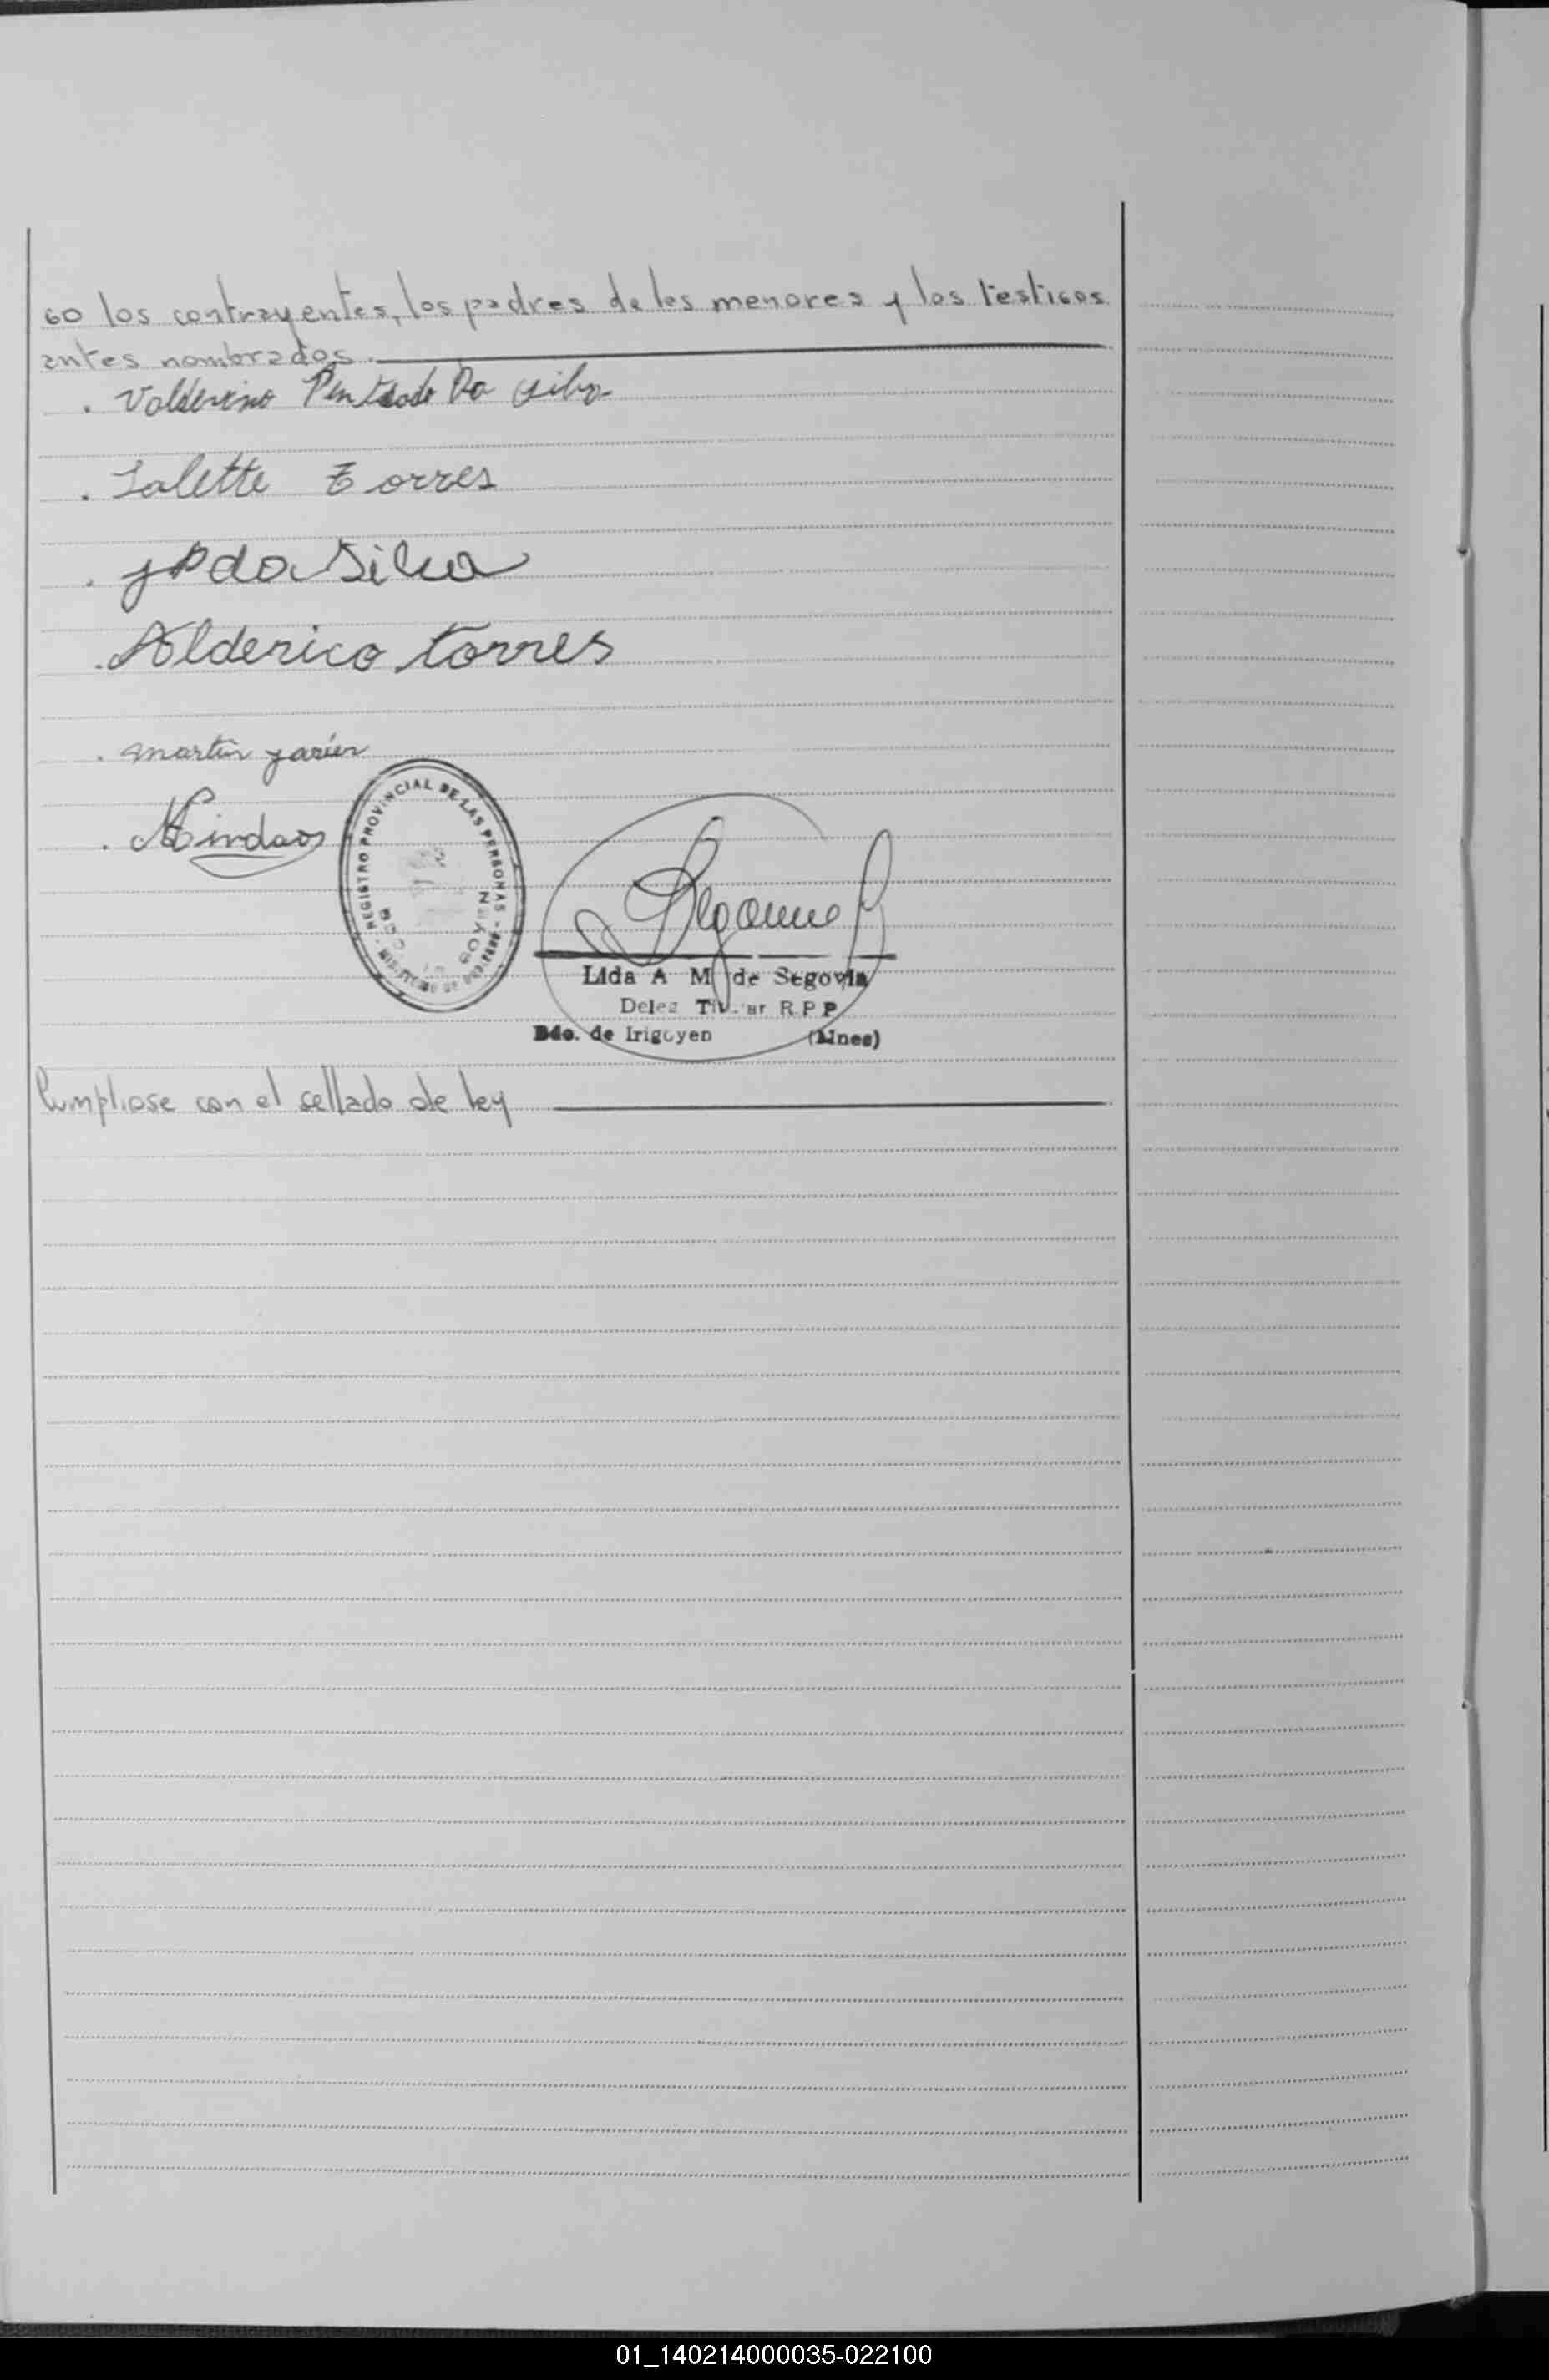 go los contrayentes, los padres de los menores y los testigos
antes nombrados.
. Valderino Penteado Da Silva
. Salette Torres
. J P da Silva
. Alderico Torres
. Martin
REGISTRO PROVINCIAL DE LAS PERSONAS - MINISTERIO DE GOBIERNO
Lida A M de Segovia
Deleg Titular R P P
Bdo. de Irigoyen (Mnes)
Cumpliose con el sellado de ley
01_140214000035-022100